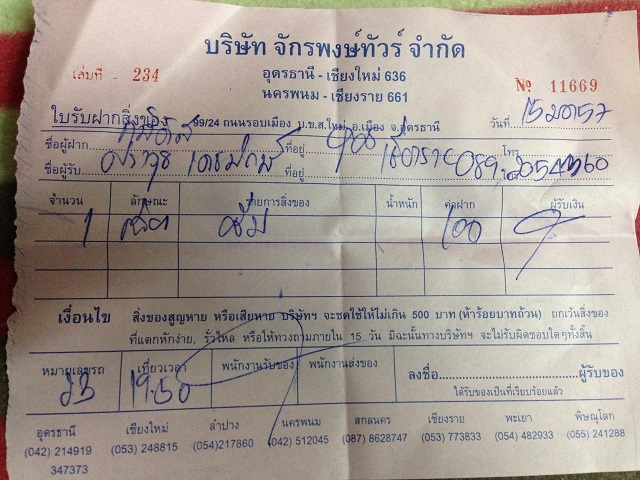 บริษัท จักรพงษ์ทัวร์ จำกัด
เล่มที่ - 234
อุดรธานี - เชียงใหม่ 636
นครพนม - เชียงราย 661
No 11669
ใบรับฝากสิ่งของ 99/24 ถนนรอบเมือง บ.ข.ส.ใหม่ อ.เมือง จ.อุดรธานี วันที่ 15 มค 57
ชื่อผู้ฝาก ที่อยู่ โทร
ชื่อผู้รับ ที่อยู่ เชียงราย
จำนวน ลักษณะ รายการสิ่งของ น้ำหนัก ค่าฝาก ผู้รับเงิน
1 100
เงื่อนไข สิ่งของสูญหาย หรือเสียหาย บริษัทฯ จะชดใช้ให้ไม่เกิน 500 บาท (ห้าร้อยบาทถ้วน) ยกเว้นสิ่งของ
ที่แตกหักง่าย, รั่วไหล หรือให้ทวงถามภายใน 15 วัน มิฉะนั้นทางบริษัทฯ จะไม่รับผิดชอบใดๆทั้งสิ้น
หมายเลขรถ เที่ยวเวลา พนักงานรับของ พนักงานส่งของ ลงชื่อ....................ผู้รับของ
23 19.50 ได้รับของเป็นที่เรียบร้อยแล้ว
อุดรธานี เชียงใหม่ ลำปาง นครพนม สกลนคร เชียงราย พะเยา พิษณุโลก
(042) 214919 (053) 248815 (054)217860 (042) 512045 (087) 8628747 (053) 773833 (054) 482933 (055) 241288
347373